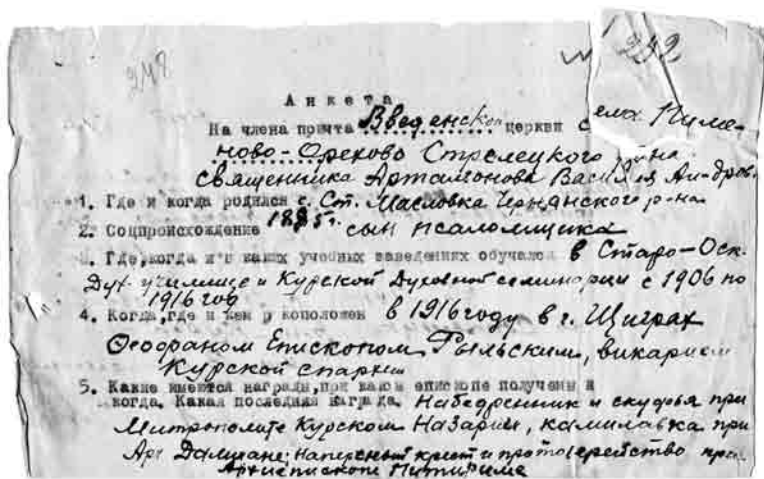 248
№ 292
Анкета
На члена причта Введенской церкви села Пиме-
ново-Орехово Стрелецкого р-на
священника Артамонова Василия Андров.
1. Где и когда родился с. Ст. Масловка Чернянского р-на
2. Соцпроисхождение 1895г. сын псаломщика
3. Где, когда и в каких учебных заведениях обучался в Старо-Оск.
Дух. училище и Курской Духовной семинарии с 1906 по
1916 год
4. Когда, где и кем рукоположен в 1916 году в г. Щиграх
Феофаном Епископом Рыльским, викарием
Курской епархии
5. Какие имеются награды, при каком епископе получены и
когда. Какая последняя награда. Набедренник и скуфья при
Митрополите Курском Назарии, камилавка при
Арх. Дамиане; наперсный крест и протоиерейство при
Архиепископе Питириме